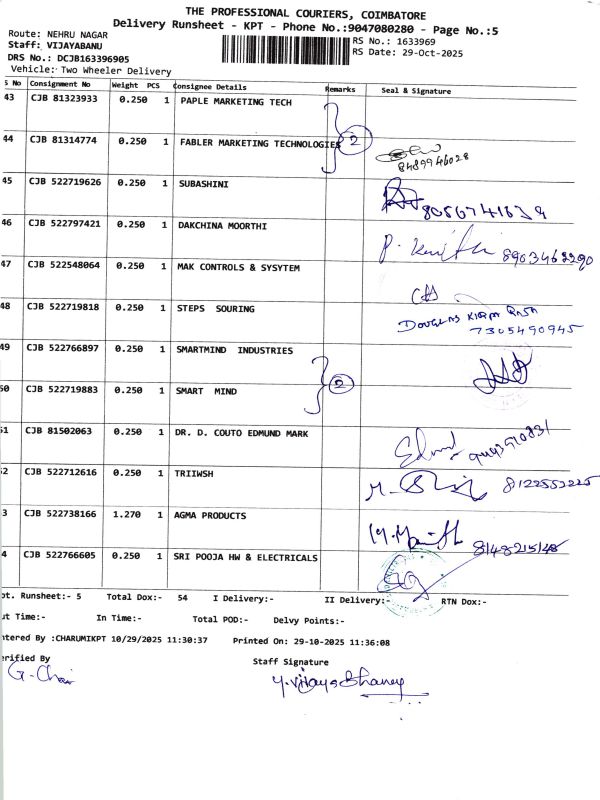 THE PROFESSIONAL COURIERS, COIMBATORE
Delivery Runsheet - KPT - Phone No.:9047080280 - Page No.:5
Route: NEHRU NAGAR
RS No.: 1633969
Staff: VIJAYABANU
RS Date: 29-Oct-2025
DRS No.: DCJB163396905
Vehicle: Two Wheeler Delivery
S No Consignment No Weight PCS Consignee Details Remarks Seal & Signature
43 CJB 81323933 0.250 1 PAPLE MARKETING TECH
44 CJB 81314774 0.250 1 FABLER MARKETING TECHNOLOGIES 2
8489946028
45 CJB 522719626 0.250 1 SUBASHINI
46 CJB 522797421 0.250 1 DAKCHINA MOORTHI
47 CJB 522548064 0.250 1 MAK CONTROLS & SYSYTEM
48 CJB 522719818 0.250 1 STEPS SOURING
7305490945
49 CJB 522766897 0.250 1 SMARTMIND INDUSTRIES
50 CJB 522719883 0.250 1 SMART MIND 2
51 CJB 81502063 0.250 1 DR. D. COUTO EDMUND MARK
52 CJB 522712616 0.250 1 TRIIWSH
8122553225
3 CJB 522738166 1.270 1 AGMA PRODUCTS
8148215148
4 CJB 522766605 0.250 1 SRI POOJA HW & ELECTRICALS
pt. Runsheet:- 5 Total Dox:- 54 I Delivery:- II Delivery:- RTN Dox:-
ut Time:- In Time:- Total POD:- Delvy Points:-
ntered By :CHARUMIKPT 10/29/2025 11:30:37 Printed On: 29-10-2025 11:36:08
erified By Staff Signature